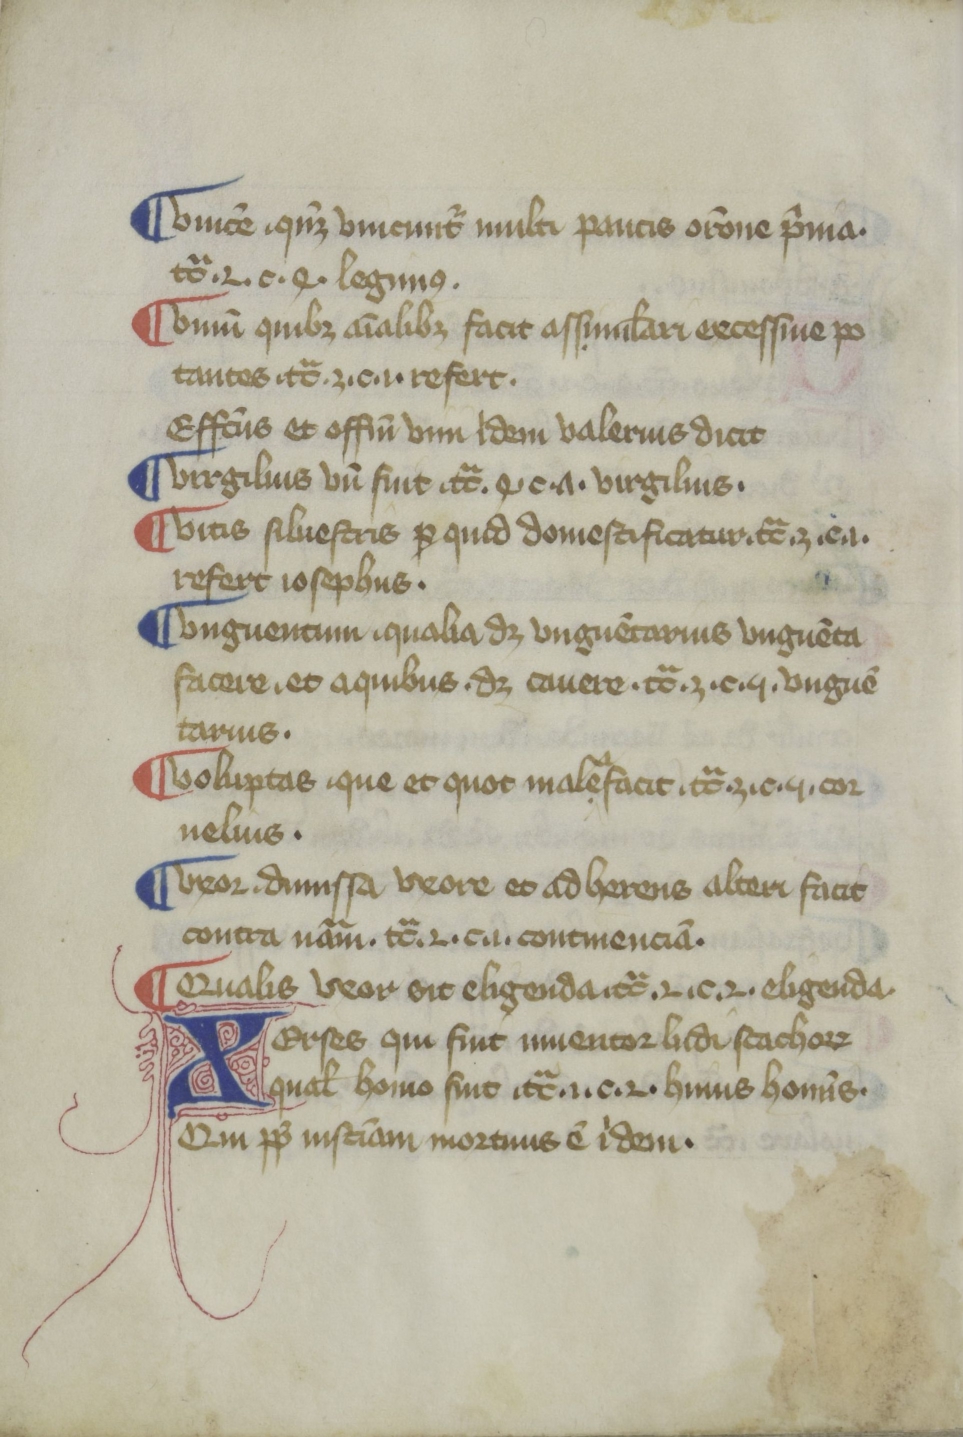 ¶ vincẽ .qñꝫ vincunt᷑ multi paucis orõne p̃uia.
tc̃ã.2.c.4. legimus.
¶ vinũ quibꝫ aĩalibꝫ facit assimilari excessiue po
tantes .tc̃ã.3.c.1. refert.
Effc̃us et offm̃ vini idem valerius dicit
¶ virgilius vñ fuit .tc̃ã. 4 c.8. virgilius.
¶ vitis siluestris ꝑ quid domestificatur .tc̃ã.3.c.1.
refert iosephus.
¶ vnguentum .qualia dꝫ vnguẽtarius vnguẽta
facere .et a quibus .dꝫ cauere .tc̃ã.3.c.5. vnguẽ
tarius.
¶ voluptas .que et quot mala facit .tc̃ã.3.c.5. cor
nelius.
¶ vxor .dimissa vxore et adherens alteri facit
contra nãm̃. tc̃ã.2.c.1. continenciã.
¶ Qualis vxor sit eligenda .tc̃ã.2.c.2. eligenda.
XErses qui fuit inuentor ludi scachoꝝ
qual̃ homo fuit .tc̃ã.1.c.2. huius homĩs.
Qui ꝓp̃ iusticiam mortuus ẽ idem.